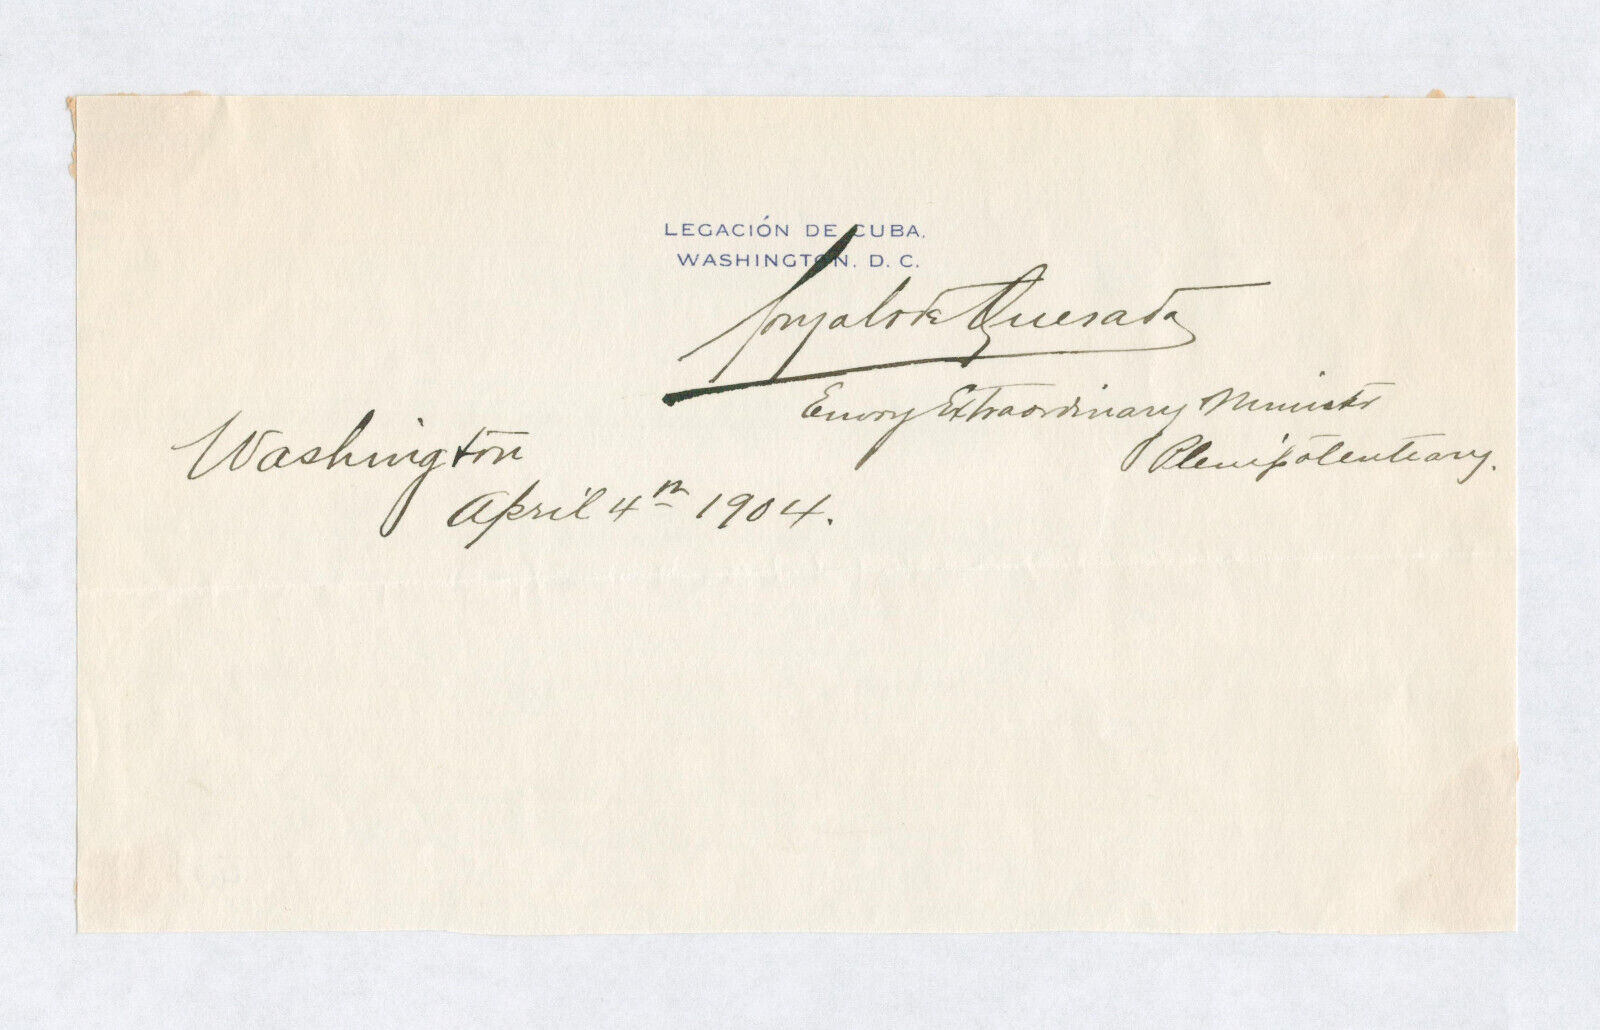 LEGACIÓN DE CUBA.
WASHINGTON, D. C.
Gonzalo de Quesada
Envoy Extraordinary Minister
Plenipotentiary.
Washington
April 4th 1904.